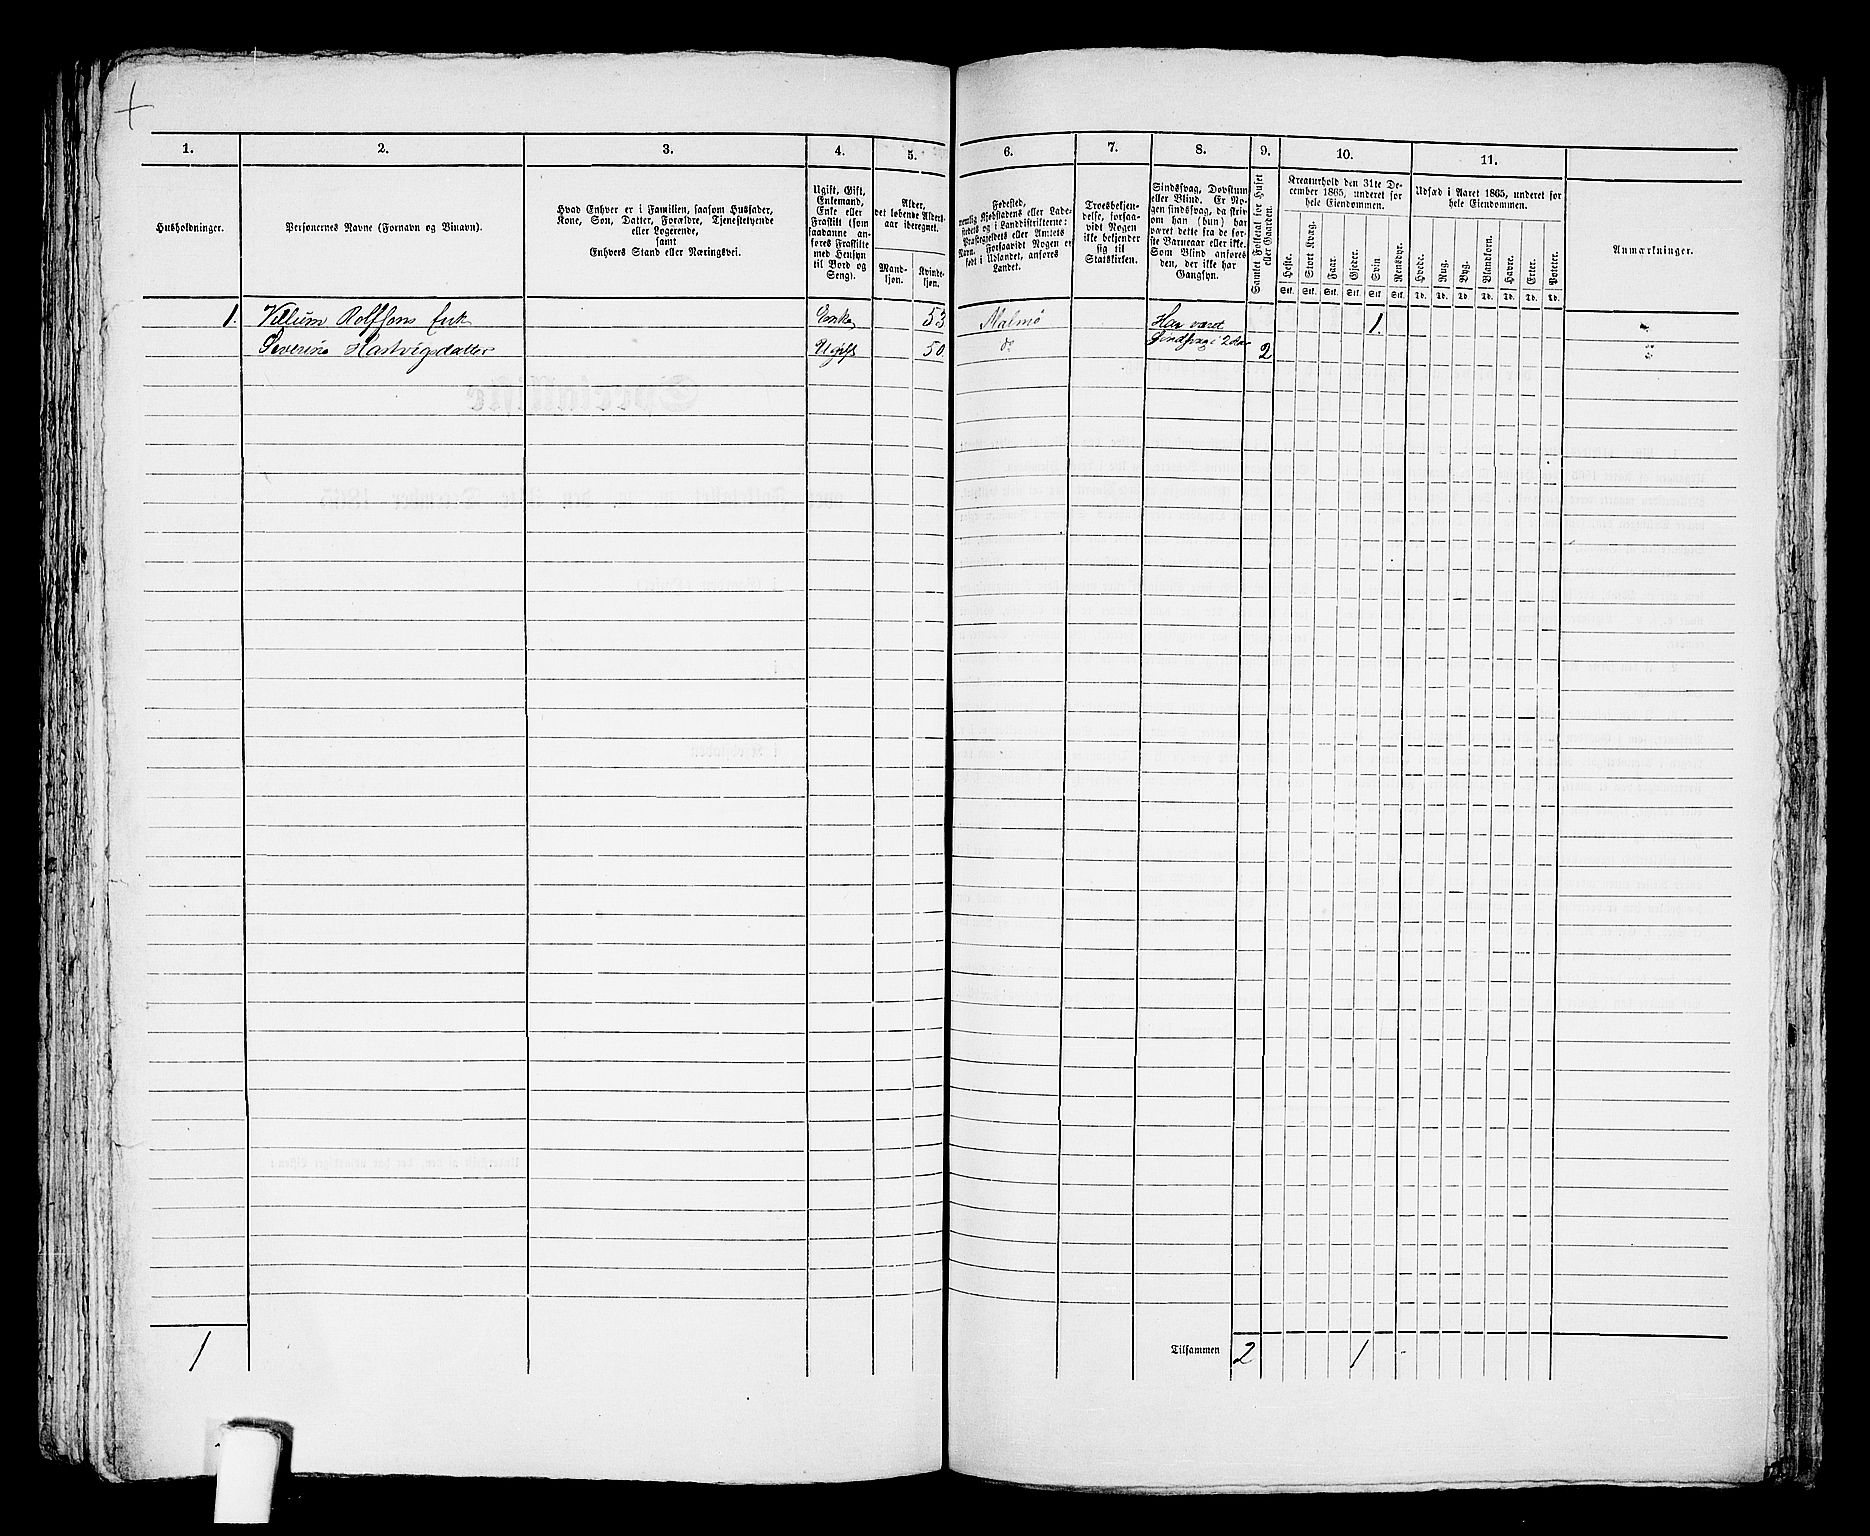 1. 2. 3. 4. 5. 6. 7. 8. 9. 10. 11.
Husholdninger.
Personernes Navne (Fornavn og Binavn).
Hvad Enhver er i Familien, saasom Husfader,
Kone, Søn, Datter, Forældre, Tjenestetyende
eller Logerende,
samt
Enhvers Stand eller Næringsvei.
Ugift, Gift,
Enkemand,
Enke eller
Fraskilt (som
saadanne an-
føres Fraskilte
med Hensyn
til Bord og
Seng).
Alder,
det løbende Alders-
aar iberegnet.
Mand-
kjøn.
Kvinde-
kjøn.
Fødested,
nemlig Kjøbstadens eller Lade-
stedets og i Landdistrikterne:
Præstegjeldets eller Amtets
Navn. Forsaavidt Nogen er
født i Udlandet, anføres
Landet.
Troesbekjen-
delse, forsaa-
vidt Nogen
ikke bekjender
sig til
Statskirken.
Sindssvag, Døvstum
eller Blind. Er No-
gen sindssvag, da skriv
om han (hun) har
været dette fra de før-
ste Barneaar eller ikke.
Som Blind anføres
den, der ikke har
Gangsyn.
Samlet Folketal for Huset
eller Gaarden.
Kreaturhold den 31te De-
cember 1865, underet for
hele Eiendommen.
Heste.
Stort Kvæg.
Faar.
Gjeder.
Svin
Rensdyr.
Stk. Stk. Stk. Stk. Stk. Stk.
Udsæd i Aaret 1865, underet for
hele Eiendommen.
Hvede.
Rug.
Byg.
Blandkorn.
Havre.
Erter.
Poteter.
Td. Td. Td. Td. Td. Td. Td.
Anmærkninger.
1. Villum Rolfsons Enk Enke 53 Malmø Har været 1.
Severine Hartvigsdatter Ugift 50 do Sindsvag i 2 Aar 2
1 Tilsammen 2 1